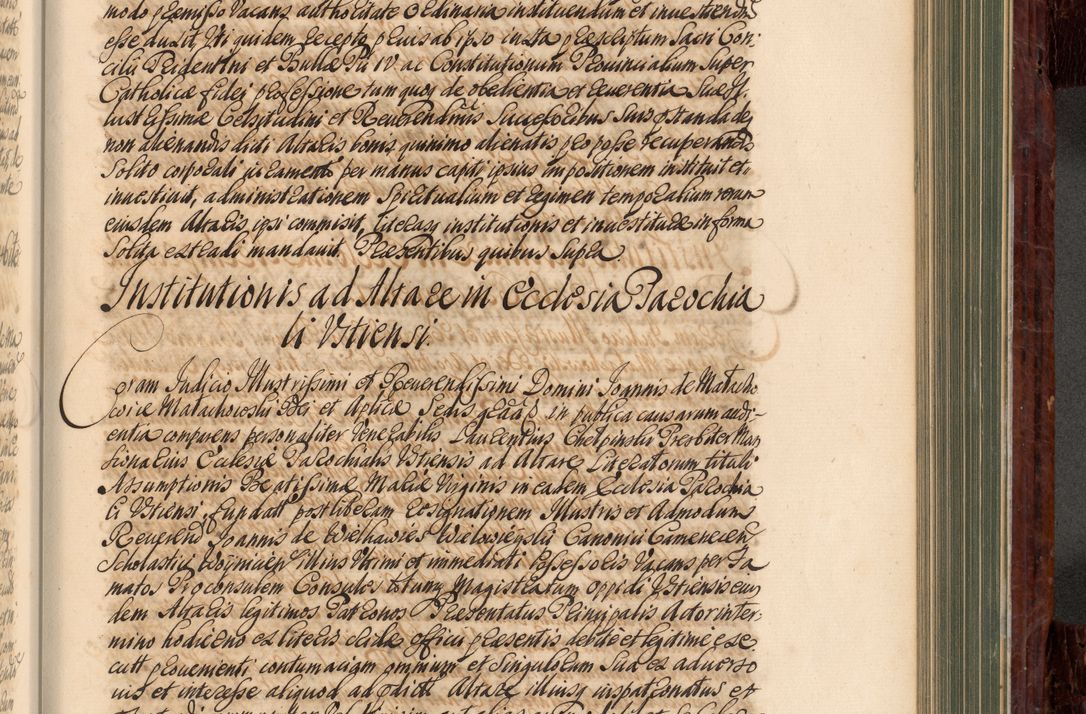 modo præmisso Vacans authoritate Ordinaria instituendum et investiendum
esse duxit, Uti quidem recepto prius ab ipso iuxta præscriptum Sacri Con-
cilii Tridentini et Bullæ Pii IV ac Constitutionum Provincialium super
Catholicæ fidei professione tum quoq de obedientia et reverentia Suæ Il-
lustrissimæ Celsitudini et Reverendmis Successoribus Suis præstanda deq
non alienandis dicti Altaris bonis, quinimo alienatis pro posse recuperandis
Solito corporali juramento per manus capiti ipsius impositionem instituit et
investivit, administrationem Spiritualium et regimen temporalium
eiusdem Altaris ipsi commisit, literasq institutionis et investituræ in forma
Solita extradi mandavit. Præsentibus quibus supra.
Institutionis ad Altare in Ecclesia Parochia
li Ustiensi.
Coram Judicio Illustrissimi et Reverendissimi Domini Joannis de Malacho
wice Malachowski Dei et Aplicæ Sedis gratia in publica causarum audi-
entia comparens personaliter Venerabilis Laurentius Chelpinski Presbiter Man
sionarius Ecclesiæ Parochialis Ustiensis ad Altare Literatorum tituli
Assumptionis Beatissimæ Mariæ Virginis in eadem Ecclesia Parochia
li Ustiensi fundatum post liberam resignationem Illustris et Admodum
Reverendi Joannis de Canonici Camenecen
Scholastici illius Ultimi et immediati Possessoris Vacans per Fa
matos Proconsulem Consules totumq Magistratum oppidi Ustiensis eius
dem Altaris legitimos Patronos Præsentatus Principalis Actor in ter-
mino hodierno ex literis cridæ officii præsentis debite et legitime exe
cutis provenienti, contumaciam omnium et Singulorum Sua ex adverso
ius et interesse aliquod ad prædictum Altare illiusq iuspatronatus et